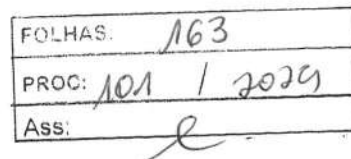 FOLHAS: 163
PROC: 101 / 2024
Ass: